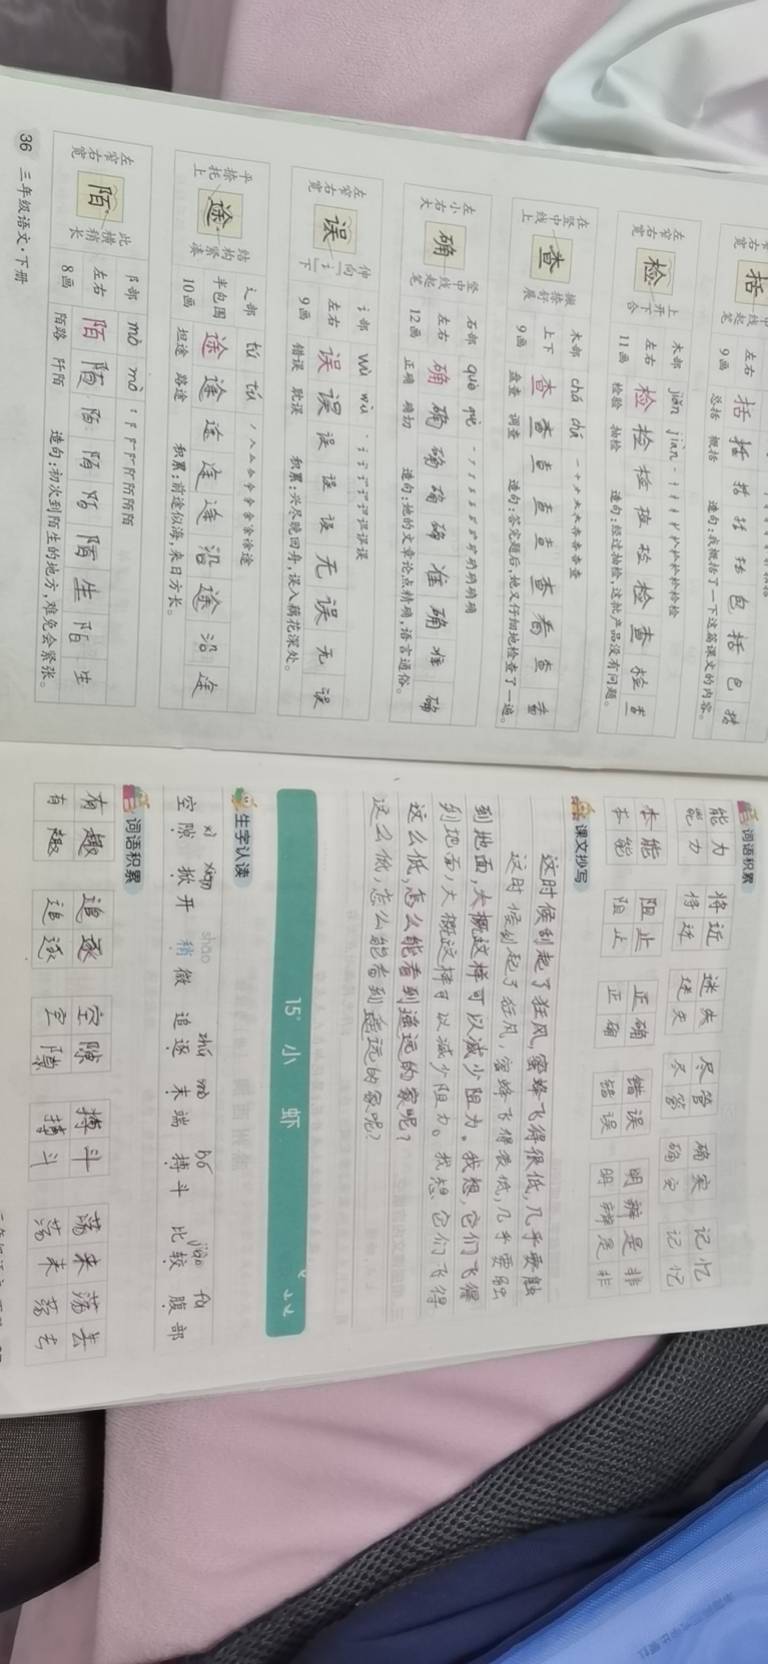 括
左右
9画
括 括 括 括 括 包 括 包 括
总括 概括
造句:我概括了一下这篇课文的内容。
左窄右宽
检
上开下合
木部 jiǎn jiǎn
左右
11画
检 检 检 检 检 检 查 检 查
检验 抽检
造句:经过抽检,这批产品没有问题。
在竖中线上
查
撇捺舒展
木部 chá chá
上下
9画
查 查 查 查 查 查 看 查 看
盘查 调查
造句:答完题后,她又仔细地检查了一遍。
左小右大
确
竖中线起笔
石部 què què
左右
12画
确 确 确 确 确 准 确 准 确
正确 确切
造句:她的文章论点精确,语言通俗。
左窄右宽
误
讠部 wù wù
左右
9画
误 误 误 误 误 无 误 无 误
错误 耽误
积累:兴尽晚回舟,误入藕花深处。
平捺托上
途
结构紧凑
辶部 tú tú
半包围
10画
途 途 途 途 途 沿 途 沿 途
坦途 路途
积累:前途似海,来日方长。
左窄右宽
陌
此横稍长
阝部 mò mò
左右
8画
陌 陌 陌 陌 陌 陌 生 陌 生
陌路 阡陌
造句:初次到陌生的地方,难免会紧张。
36 三年级语文·下册
词语积累
能力 将近 迷失 尽管 确实 记忆
能力 将近 迷失 尽管 确实 记忆
本能 阻止 正确 错误 明辨是非
本能 阻止 正确 错误 明辨是非
课文抄写
这时候刮起了狂风,蜜蜂飞得很低,几乎要触
这时候刮起了狂风,蜜蜂飞得很低,几乎要触
到地面,大概这样可以减少阻力。我想,它们飞得
到地面,大概这样可以减少阻力。我想,它们飞得
这么低,怎么能看到遥远的家呢?
这么低,怎么能看到遥远的家呢?
15* 小 虾
生字认读
xì xiān shāo zhú mò bó jiào fù
空隙 掀开 稍微 追逐 末端 搏斗 比较 腹部
词语积累
有趣 追逐 空隙 搏斗 荡来荡去
有趣 追逐 空隙 搏斗 荡来荡去